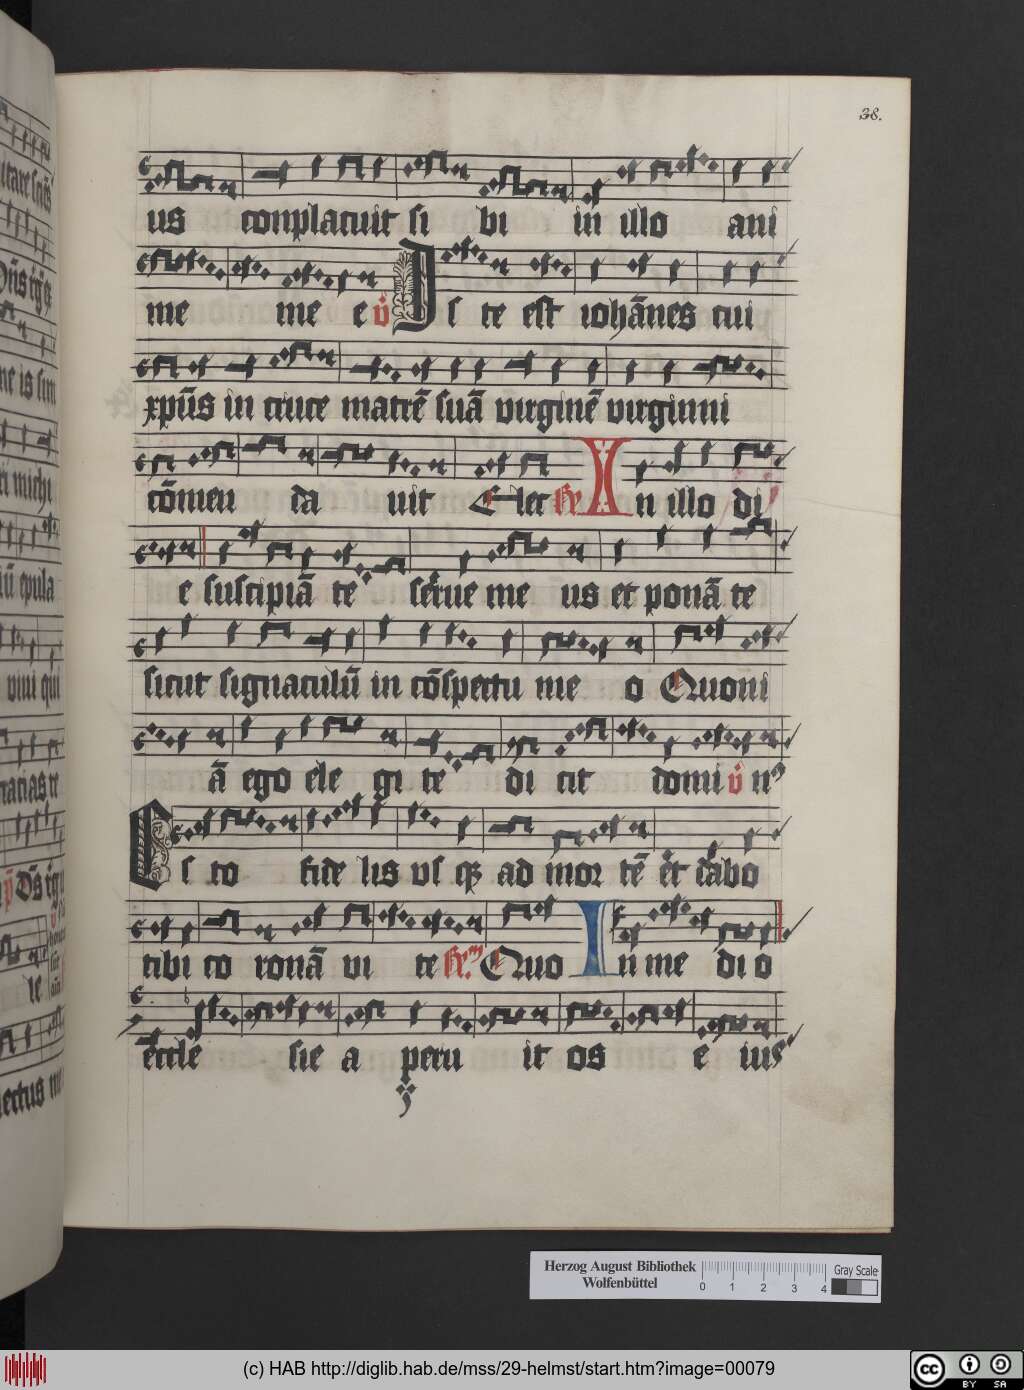 38.
us conplacuit si bi in illo ani
me me e v̉ Is te est iohānes cui
xpūs in cruce matrē suā virginē virgini
cōmen da uit Elec R̷ In illo di
e suscipiā te serue me us et ponā te
sicut signaculū in cōspectu me o Quoni
ā ego ele gi te di cit domi v̉ nꝰ
Es to fide lis vs qꝫ ad mor tē et dabo
tibi co ronā vi te R̷m Quo In me di o
eccle sie a peru it os e ius
Herzog August Bibliothek
Wolfenbüttel
0 1 2 3 4
Gray Scale
(c) HAB http://diglib.hab.de/mss/29-helmst/start.htm?image=00079
cc BY SA